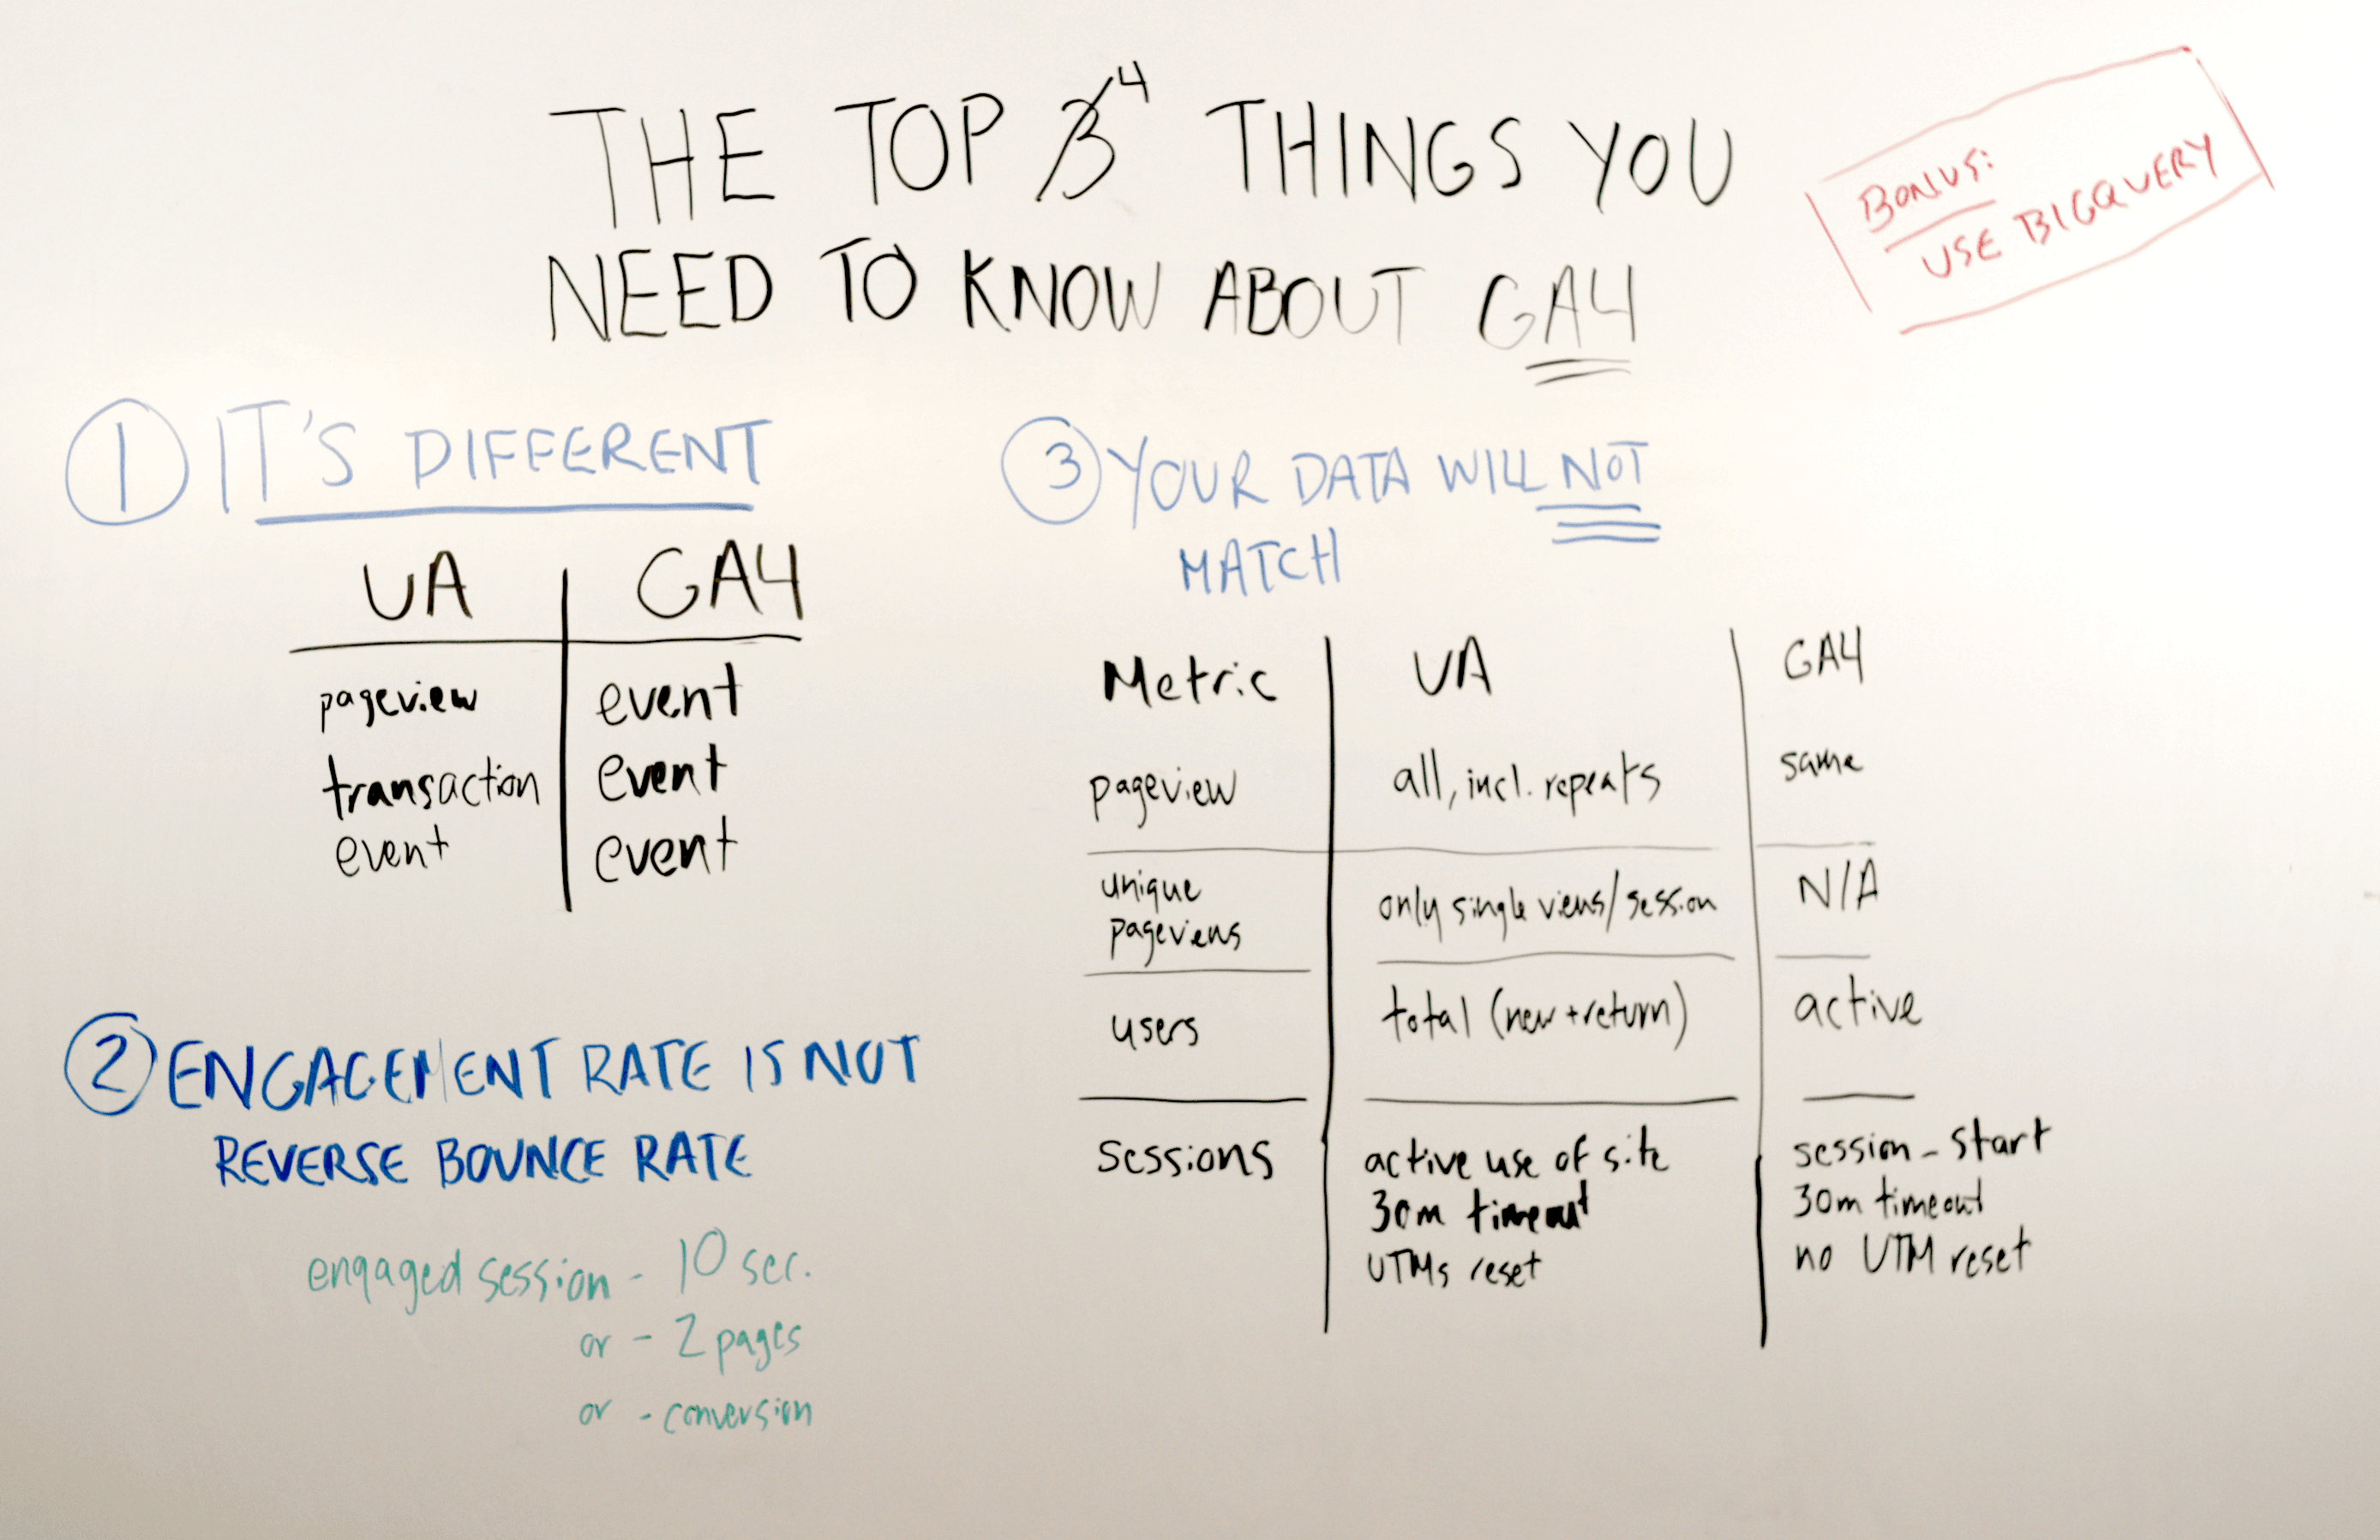 THE TOP 3 4 THINGS YOU
NEED TO KNOW ABOUT GA4
BONUS:
USE BIGQUERY
1 IT'S DIFFERENT
UA GA4
pageview event
transaction event
event event
2 ENGAGEMENT RATE IS NOT
REVERSE BOUNCE RATE
engaged session - 10 sec.
or - 2 pages
or - conversion
3 YOUR DATA WILL NOT
MATCH
Metric UA GA4
pageview all, incl. repeats same
unique
pageviews only single views/session N/A
users total (new + return) active
sessions active use of site session_start
30m timeout 30m timeout
UTMs reset no UTM reset